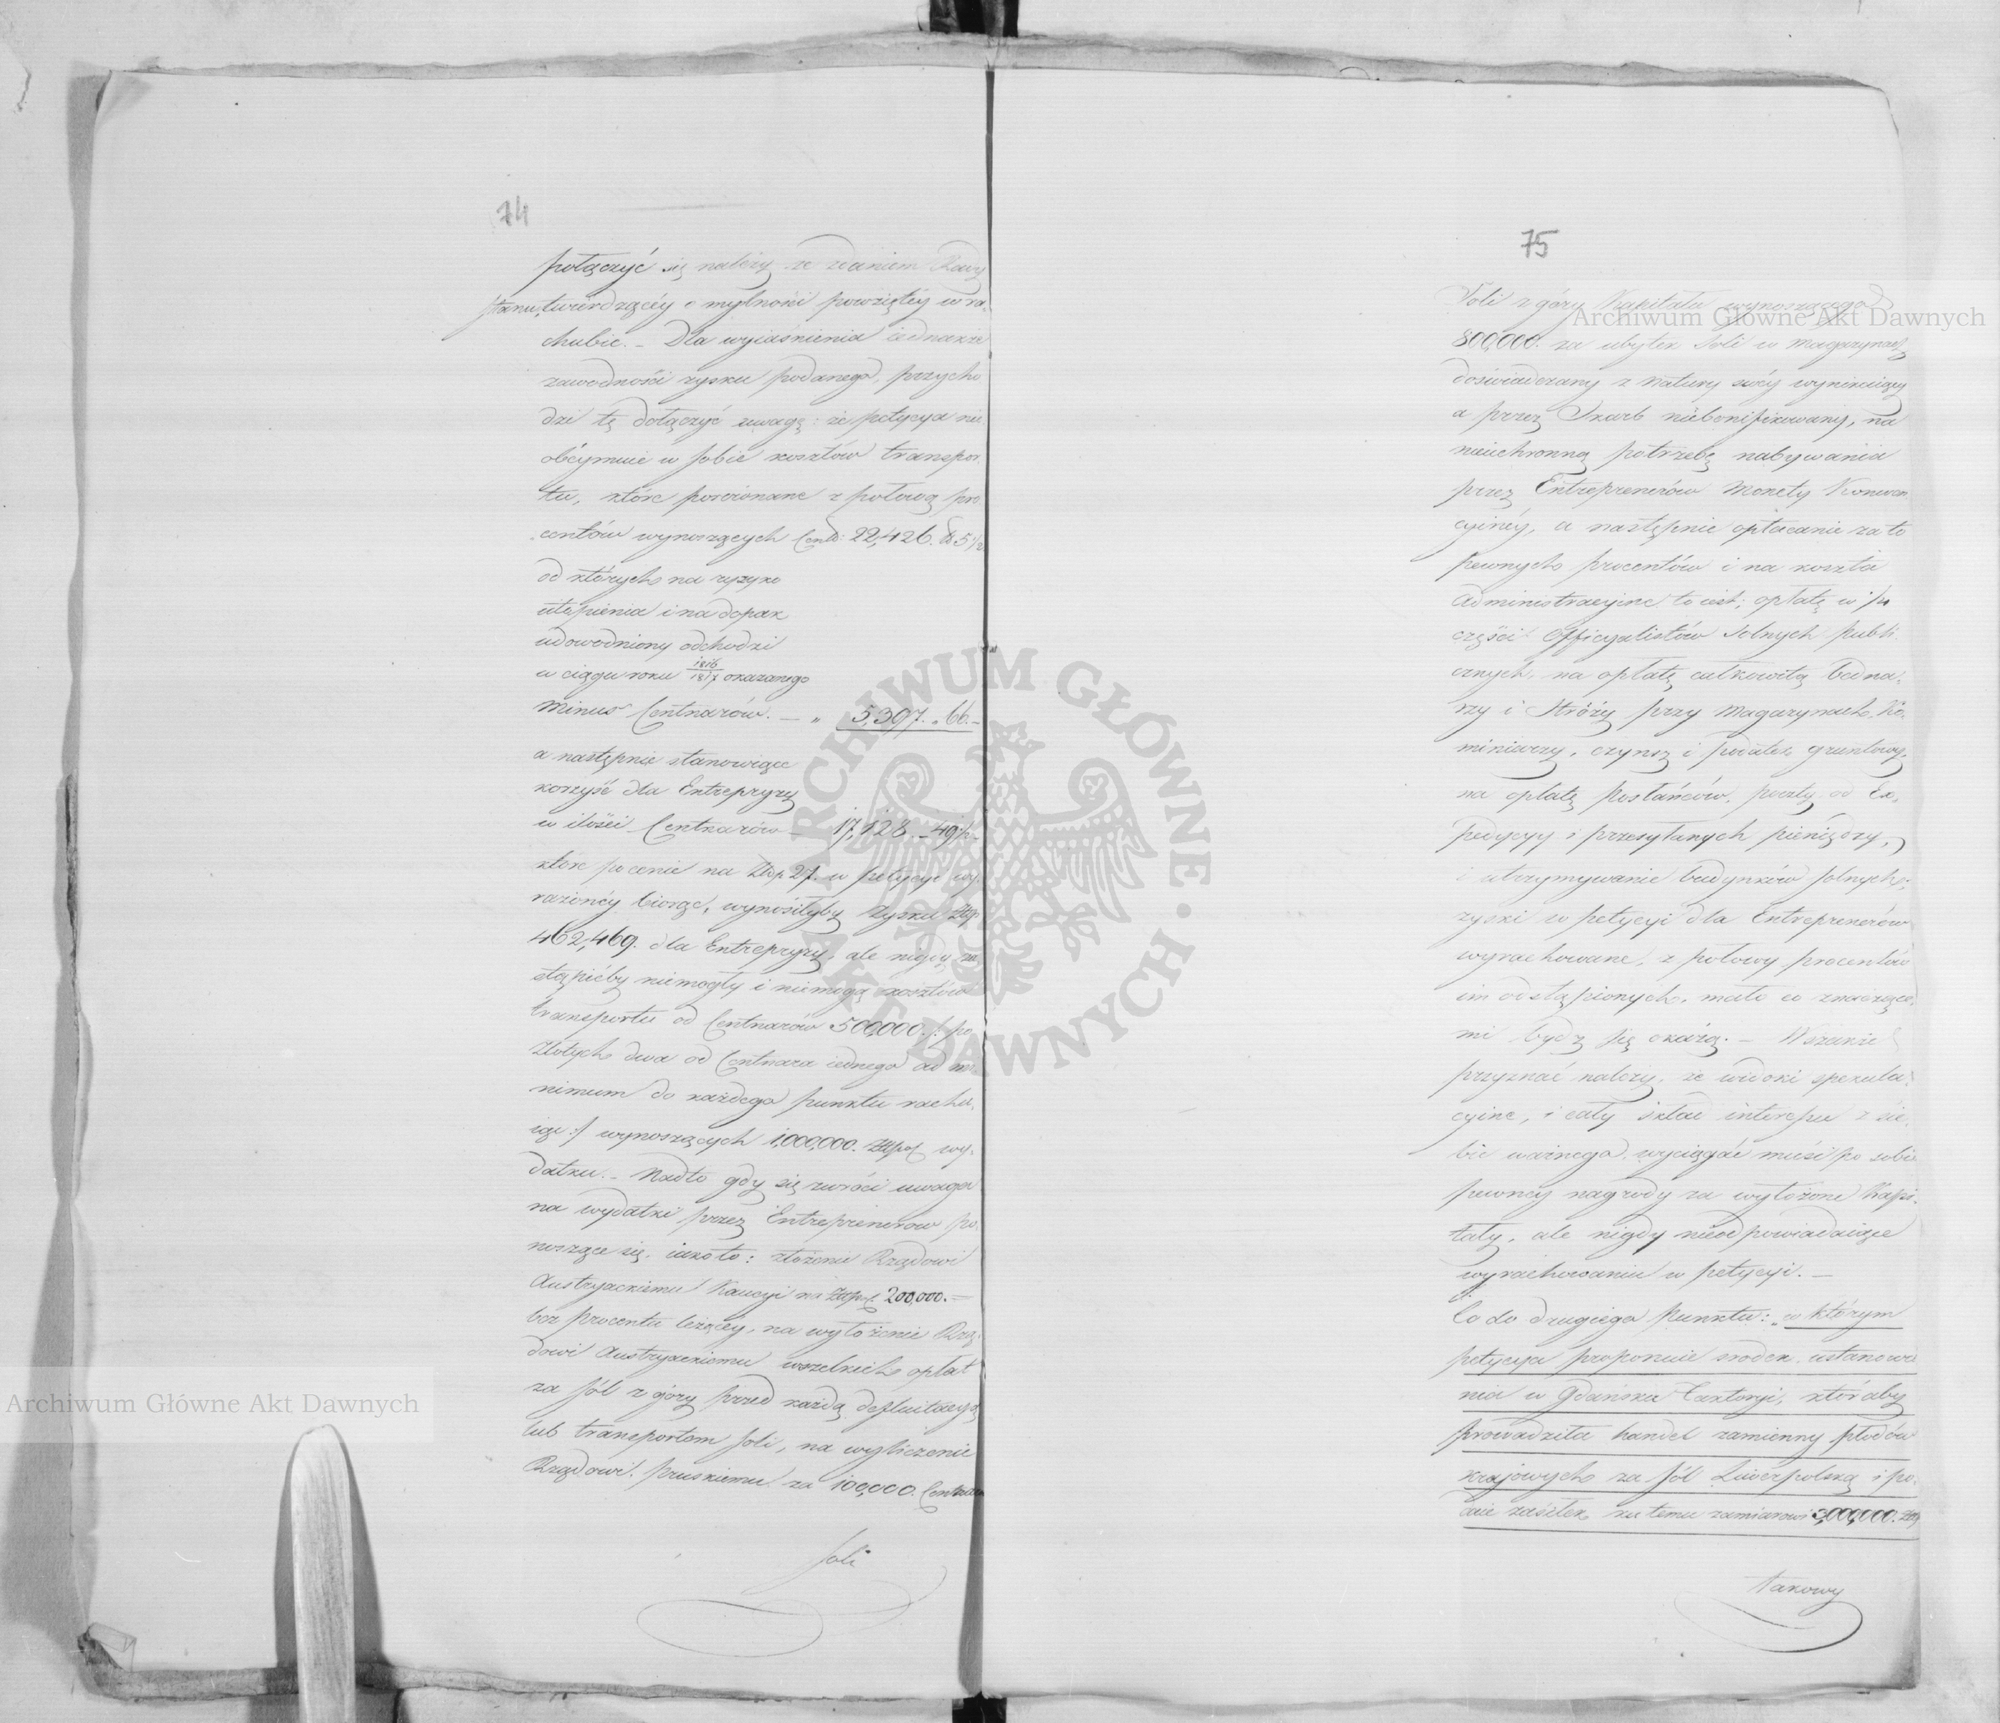 74
połączyć się należy ze zdaniem Rady
stanu, twierdzącéy o mylności powziętéy w ra-
chubie. – Dla wyiaśnienia iednakże
zawodności zysku podanego, przycho-
dzi tę dołączyć uwagę: że petycya nie
obéymuie w sobie kosztów transpor-
tu, które porównane z połową pro-
centów wynoszących Centn: 22,426. 5 1/2
od których na ryzyko
utopienia i na dopak
udowodniony odchodzi
w ciągu roku 1816/1817 okazanego
Minus Centnarów. – " 5,397. " 66. –
a następnie stanowiące
korzyść dla Entrepryzy
w ilości Centnarów – 17,128. – 49
które po cenie na Złop 27. w petycyi wy-
rażonéy biorąc, wynosiłyby zysku Złp.
462,469. dla Entrepryzy, ale nigdy za-
stąpićby niemogły i niemogą kosztów
transportu od Centnarów 500,000. /: po
złotych dwa od Centnara iednego ad mi-
nimum do każdego punktu rachu-
iąc :/ wynoszących 1,000,000. Złpol wy-
datku. – Nadto gdy się zwróci uwaga
na wydatki przez Entreprenerów po-
noszące się, iako to: złożeniu Rządowi
Austryackiemu Kaucyi na Złpol. 200,000. –
bez procentu leżącéy, na wyłożenie Rzą-
dowi Austryackiemu wszelkich opłat
za sól z góry przed każdą defluitacyą
lub transportem soli, na wyliczenie
Rządowi Pruskiemu za 100,000. Centnarów
soli
75
Soli z góry Kapitału wynoszącego
800,000. za ubytek Soli w Magazynach
doświadczany z natury swéy wynikaiący
a przez Skarb niebonifikowany, na
nieuchronną potrzebę nabywania
przez Entreprenerów Monety Konwen-
cyinéy, a następnie opłacanie za to
pewnych procentów i na koszta
administracyine to iest; opłatę w 1/4
części Officyalistów Solnych publi-
cznych, na opłatę całkowitą Bedna-
rzy i Stróży przy Magazynach, Ko-
miniarzy, czynsz i podatek gruntowy,
na opłatę posłańców, poczty, od Ex-
pedycyy i przesyłanych pieniędzy,
i utrzymywanie budynków solnych;
zyski w petycyi dla Entreprenerów
wyrachowane, z połowy procentów
im odstąpionych, mało co znaczące-
mi bydź się okażą. – Wszakże
przyznać należy, że widoki spekula-
cyine, i cały skład interessu z sie-
bie ważnego, wyciągać musi po sobie
pewnéy nagrody za wyłożone Kapi-
tały, ale nigdy nieodpowiadaiące
wyrachowaniu w petycyi. –
Co do drugiego Punktu: „w którym
petycya proponuie srodek ustanowie-
nia w Gdańsku Faktoryi, któraby
prowadziła handel zamienny płodów
kraiowych za sól Liwerpolską i po-
daie zasiłek ku temu zamiarowi 3,000,000. Złp
takowy
Archiwum Główne Akt Dawnych
Archiwum Główne Akt Dawnych
ARCHIWUM GŁÓWNE • AKT DAWNYCH •